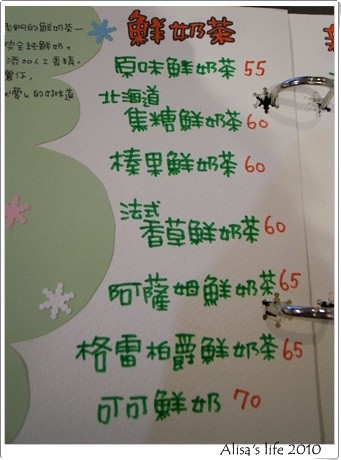 鮮奶茶
的鮮奶茶一
完全純鮮奶。
添加人工香精,
的好味道
原味鮮奶茶 55
北海道
焦糖鮮奶茶 60
榛果鮮奶茶 60
法式
香草鮮奶茶 60
阿薩姆鮮奶茶 65
格雷柏爵鮮奶茶 65
可可鮮奶 70
Alisa's life 2010